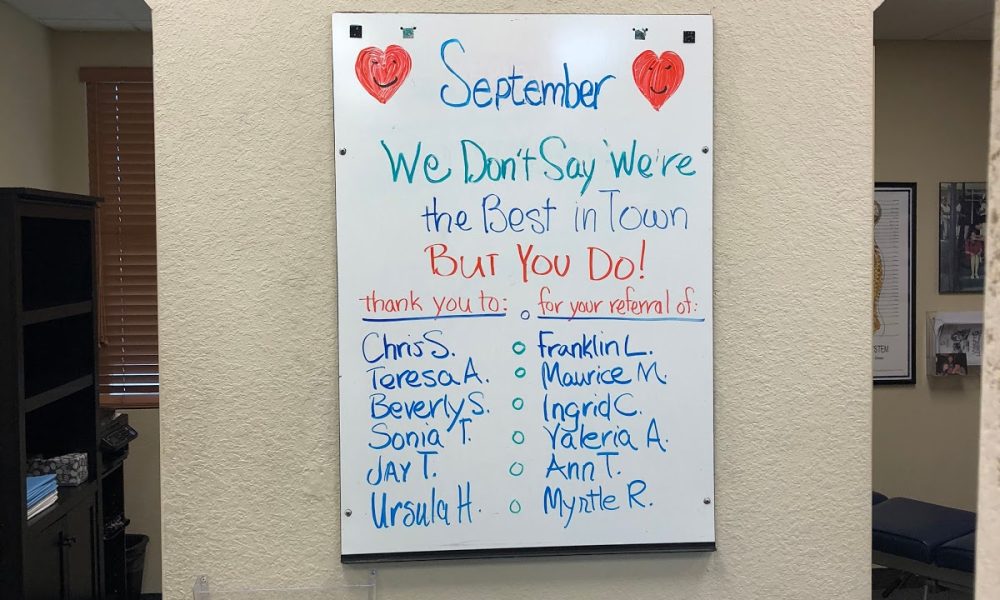 September
We Don't Say We're
the Best in Town
BUT YOU DO!
thank you to: for your referral of:
Chris S. Franklin L.
Teresa A. Maurice M.
Beverly S. Ingrid C.
Sonia T. Valeria A.
JAY T. Ann T.
Ursula H. Myrtle R.
STEM